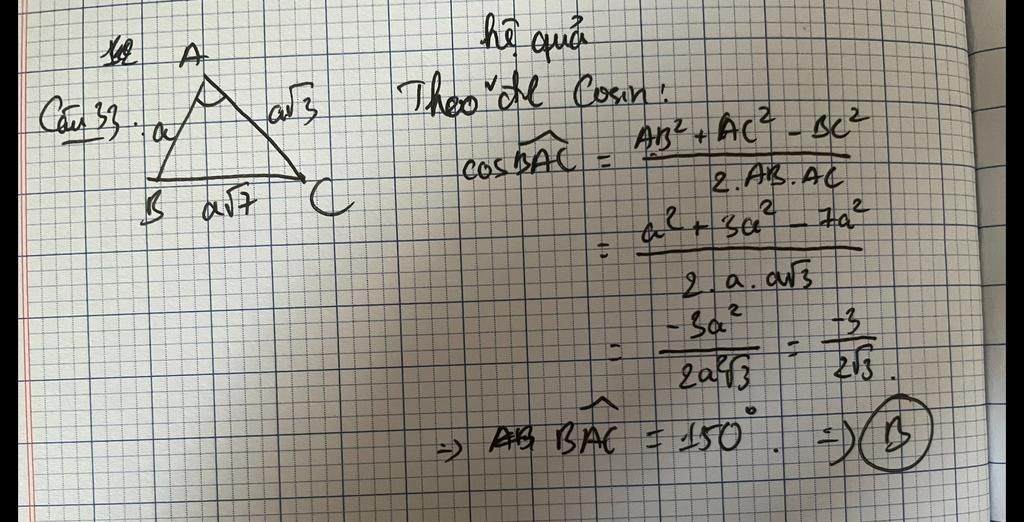 hệ quả
A
Câu 33.
a
a√3
B
a√7
C
Theo đl Cosin:
cos BAC^ = (AB² + AC² - BC²) / (2.AB.AC)
= (a² + 3a² - 7a²) / (2.a.a√3)
= -3a² / 2a²√3 = -3 / 2√3.
=> BAC^ = 150°. => B